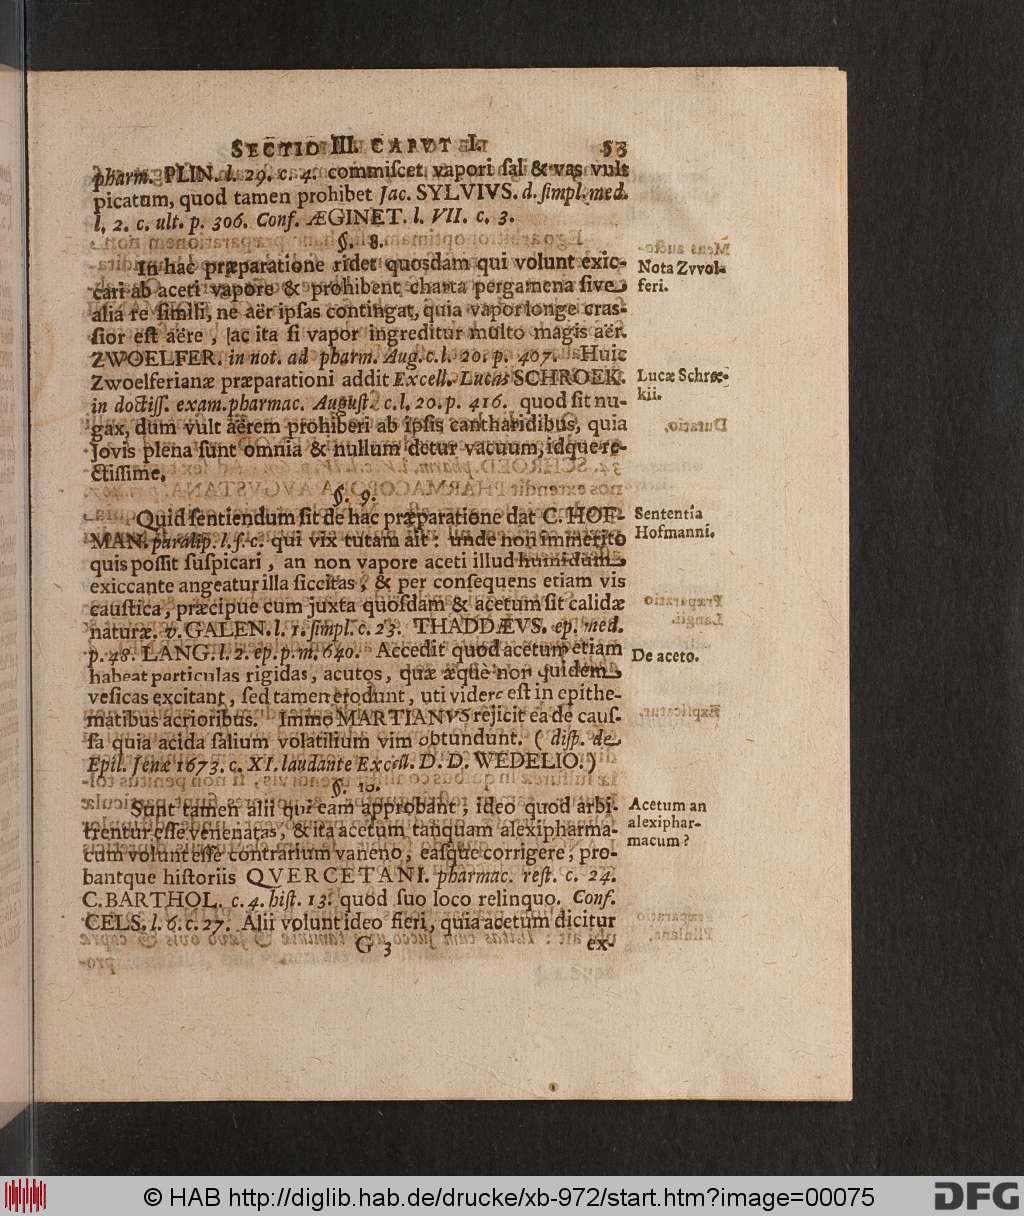 SECTIO III. CAPUT I. 53
pharm. PLIN. l. 29. c. 4. commiſcet vapori ſal & vas vult
picatum, quod tamen prohibet Jac. SYLVIVS. d. ſimpl. med.
l, 2. c. ult. p. 306. Conf. ÆGINET. l. VII. c. 3.
§. 8.
In hac præparatione ridet quosdam qui volunt exic-
cari ab aceti vapore & prohibent charta pergamena ſive
alia re ſimili, ne aër ipſas contingat, quia vapor longe craſ-
ſior eſt aëre, ac ita ſi vapor ingreditur multo magis aër.
ZWOELFER. in not. ad pharm. Aug. c. l. 20. p. 407. Huic
Zwoelferianæ præparationi addit Excell. Lucas SCHROEK.
in doctiſſ. exam. pharmac. Auguſt. c. l, 20. p. 416. quod ſit nu-
gax, dum vult aërem prohiberi ab ipſis cantharidibus, quia
Jovis plena ſunt omnia & nullum detur vacuum, idque re-
ctiſſime.
Nota Zvvol-
feri.
Lucæ Schrœ-
kii.
§. 9.
Quid ſentiendum ſit de hac præparatione dat C. HOF-
MAN. paralip. l. ſ. c. qui vix tutam ait: unde non immerito
quis poſſit ſuſpicari, an non vapore aceti illud humidum
exiccante angeatur illa ſiccitas, & per conſequens etiam vis
cauſtica, præcipue cum juxta quoſdam & acetum ſit calidæ
naturæ. v. GALEN. l. 1. ſimpl. c. 23. THADDÆVS. ep. med.
p. 48. LANG. l. 2. ep. p. m. 640. Accedit quod acetum etiam
habeat particulas rigidas, acutos, quæ æquè non quidem
veſicas excitant, ſed tamen erodunt, uti videre eſt in epithe-
matibus acrioribus. Immo MARTIANVS rejicit ea de cauſ-
ſa quia acida ſalium volatilium vim obtundunt. ( diſp. de
Epil. Jenæ 1673. c. XI. laudante Excell. D. D. WEDELIO.)
Sententia
Hofmanni.
De aceto.
§. 10.
Sunt tamen alii qui eam approbant, ideo quod arbi-
trentur eſſe venenatas, & ita acetum tanquam alexipharma-
cum volunt eſſe contrarium vaneno, eaſque corrigere, pro-
bantque hiſtoriis QVERCETANI. pharmac. reſt. c. 24.
C. BARTHOL. c. 4. hiſt. 13. quod ſuo loco relinquo. Conf.
CELS. l. 6. c. 27. Alii volunt ideo fieri, quia acetum dicitur
Acetum an
alexiphar-
macum?
G 3 ex-
© HAB http://diglib.hab.de/drucke/xb-972/start.htm?image=00075
DFG